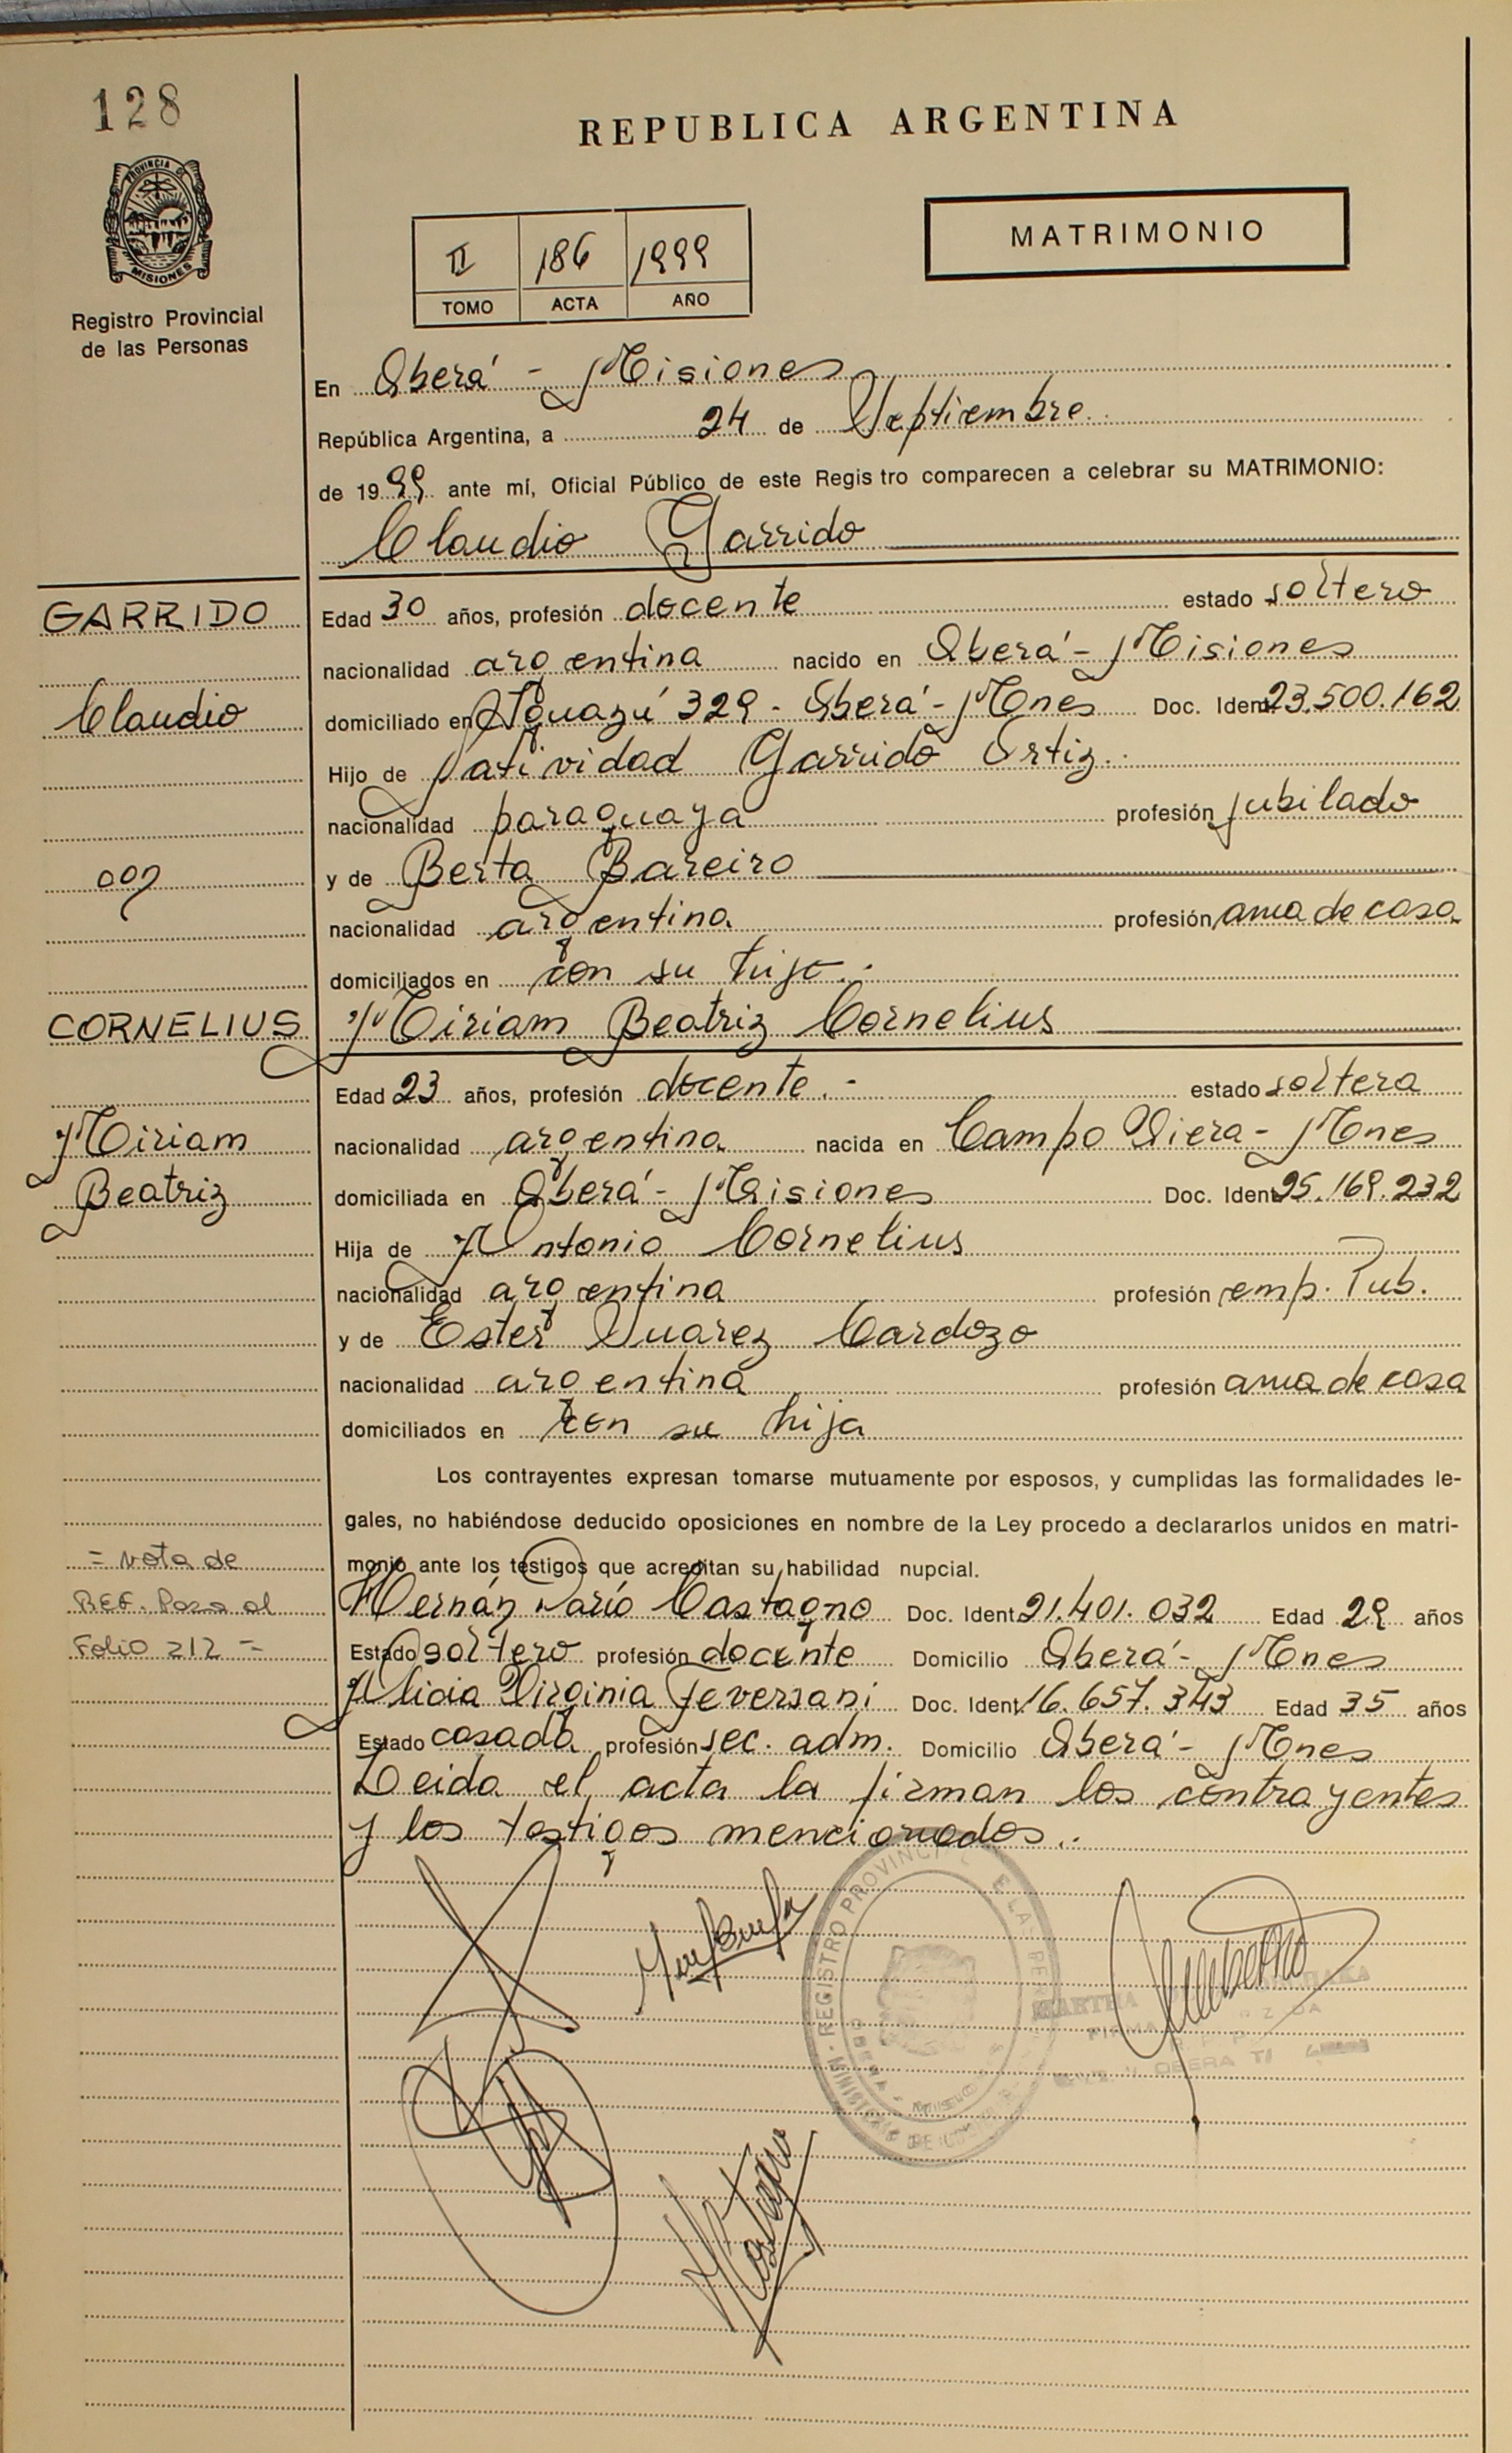 128
PROVINCIA DE
MISIONES
Registro Provincial
de las Personas
REPUBLICA ARGENTINA
II 186 1999
TOMO ACTA AÑO
MATRIMONIO
En Oberá - Misiones
República Argentina, a 24 de Septiembre
de 1999 ante mí, Oficial Público de este Regis tro comparecen a celebrar su MATRIMONIO:
Claudio Garrido
GARRIDO
Claudio
Edad 30 años, profesión docente estado soltero
nacionalidad argentina nacido en Oberá - Misiones
domiciliado en Iguazú 329 - Oberá - Mnes Doc. Ident. 23.500.162
Hijo de Natividad Garrido Ortiz.
nacionalidad paraguaya profesión jubilado
y de Berta Bareiro
nacionalidad argentina profesión ama de casa
domiciliados en con su hijo.-
CORNELIUS
Miriam Beatriz Cornelius
Miriam
Beatriz
Edad 23 años, profesión docente.- estado soltera
nacionalidad argentina nacida en Campo Viera - Mnes
domiciliada en Oberá - Misiones Doc. Ident. 25.169.232
Hija de Antonio Cornelius
nacionalidad argentina profesión emp. Pub.
y de Ester Suarez Cardozo
nacionalidad argentina profesión ama de casa
domiciliados en con su hija
Los contrayentes expresan tomarse mutuamente por esposos, y cumplidas las formalidades le-
gales, no habiéndose deducido oposiciones en nombre de la Ley procedo a declararlos unidos en matri-
monio ante los testigos que acreditan su habilidad nupcial.
= Nota de
REF. Pasa al
Folio 212 =
Hernán Darío Castagno Doc. Ident. 21.401.032 Edad 29 años
Estado soltero profesión docente Domicilio Oberá - Mnes
Alicia Virginia Feversani Doc. Ident. 16.657.343 Edad 35 años
Estado casada profesión sec. adm. Domicilio Oberá - Mnes
Leida el acta la firman los contrayentes
y los testigos mencionados.-
REGISTRO PROVINCIAL DE LAS PER
MARTHA
FIRMA
OBERA